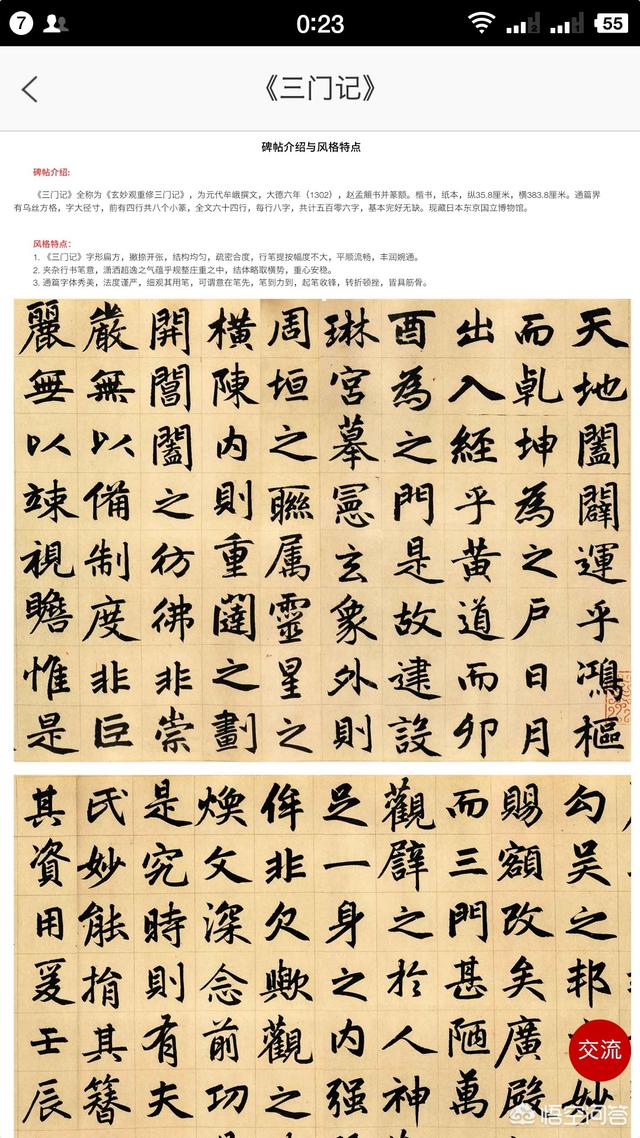 7
0:23
2
1
55
《三门记》
碑帖介绍与风格特点
碑帖介绍:
《三门记》全称为《玄妙观重修三门记》，为元代牟巘撰文，大德六年（1302），赵孟頫书并篆额。楷书，纸本，纵35.8厘米，横383.8厘米。通篇界
有乌丝方格，字大径寸，前有四行共八个小篆，全文六十四行，每行八字，共计五百零六字，基本完好无缺。现藏日本东京国立博物馆。
风格特点：
1. 《三门记》字形扁方，撇捺开张，结构均匀，疏密合度，行笔提按幅度不大，平顺流畅，丰润婉通。
2. 夹杂行书笔意，潇洒超逸之气蕴乎规整庄重之中，结体略取横势，重心安稳。
3. 通篇字体秀美，法度谨严，细观其用笔，可谓意在笔先，笔到力到，起笔收锋，转折顿挫，皆具筋骨。
天地闔闢運乎鴻樞
而乹坤為之戶日月
出入經乎黃道而卯
酉為之門是故建設
琳宮摹憲玄象外則
周垣之聯属靈星之
橫陳內則重闥之劃
開閶闔之彷彿非崇
嚴無以備制度非巨
麗無以竦視瞻惟是
勾吳之邦妙
賜額改矣廣殿
而三門甚陋萬
觀譬之於人神
足一身之內强
侔非欠歟觀之
煥文深念前功
是究時則有夫
民妙能捐其簪
其資用爰壬辰
交流
悟空问答